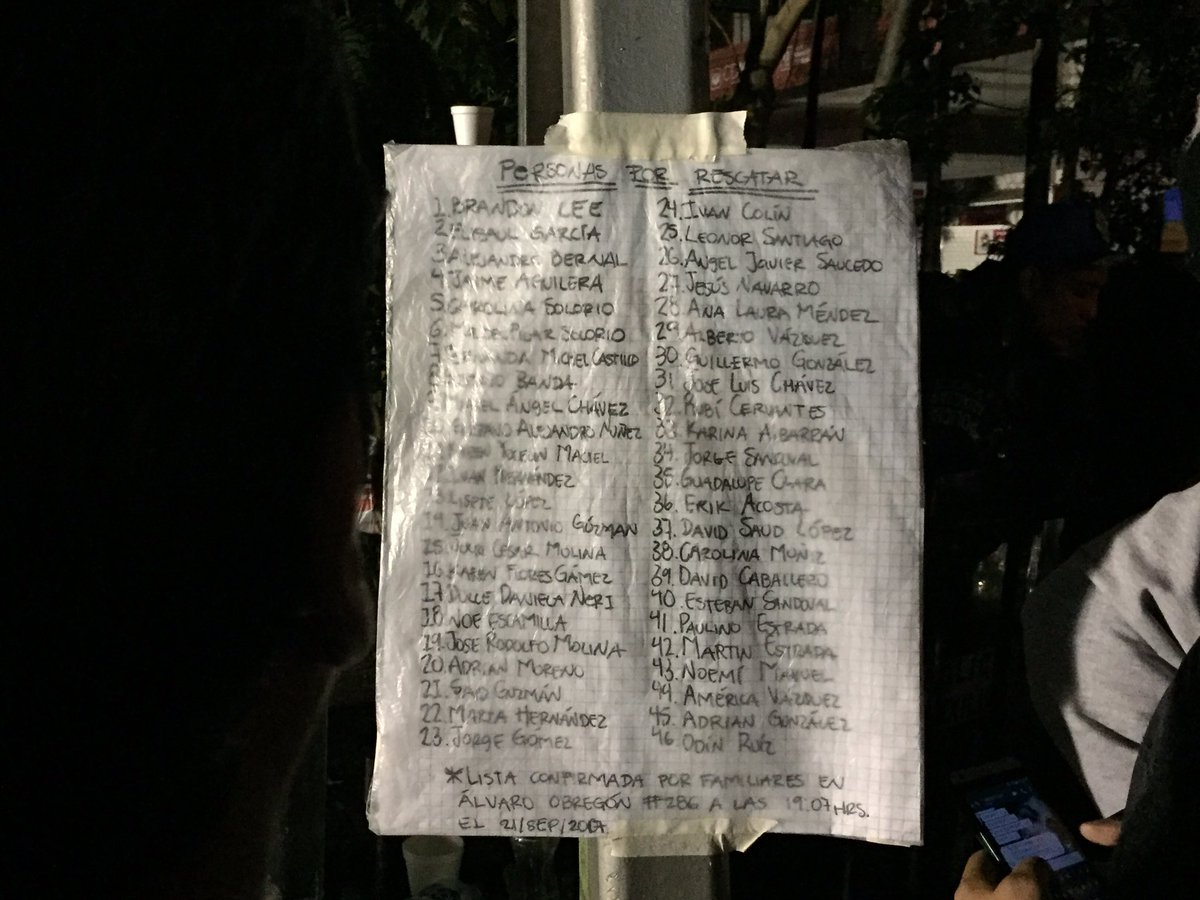 PERSONAS POR RESCATAR
1. BRANDON LEE
2. ELISAUL GARCÍA
3. ALEJANDRO BERNAL
4. JAIME AGUILERA
5. CAROLINA SOLORIO
6. DEL PILAR SOLORIO
7. FERNANDA MICHEL CASTILLO
8. BANDA
9. ANGEL CHÁVEZ
10. GUSTAVO ALEJANDRO NUÑEZ
JOCELIN MACIEL
JUAN HERNÁNDEZ
LISETE LÓPEZ
14. JUAN ANTONIO GÚZMAN
15. JULIO CÉSAR MOLINA
16. KAREN FLORES GÁMEZ
17. DULCE DANIELA NERI
18. NOÉ ESCAMILLA
19. JOSE RODOLFO MOLINA
20. ADRIAN MORENO
21. SAID GUZMÁN
22. MARTA HERNÁNDEZ
23. JORGE GOMEZ
24. IVAN COLÍN
25. LEONOR SANTIAGO
26. ANGEL JAVIER SAUCEDO
27. JESÚS NAVARRO
28. ANA LAURA MÉNDEZ
29. ALBERTO VÁZQUEZ
30. GUILLERMO GONZÁLEZ
31. JOSÉ LUIS CHÁVEZ
32. RUBÍ CERVANTES
33. KARINA ALBARRÁN
34. JORGE SANDOVAL
35. GUADALUPE CLARA
36. ERIK ACOSTA
37. DAVID SAUD LÓPEZ
38. CAROLINA MUÑIZ
39. DAVID CABALLERO
40. ESTEBAN SANDOVAL
41. PAULINO ESTRADA
42. MARTIN ESTRADA
43. NOEMÍ MANUEL
44. AMÉRICA VÁZQUEZ
45. ADRIAN GONZÁLEZ
46 ODÍN RUÍZ
*LISTA CONFIRMADA POR FAMILIARES EN
ÁLVARO OBREGÓN #286 A LAS 19:07 HRS.
EL 21/SEP/2017